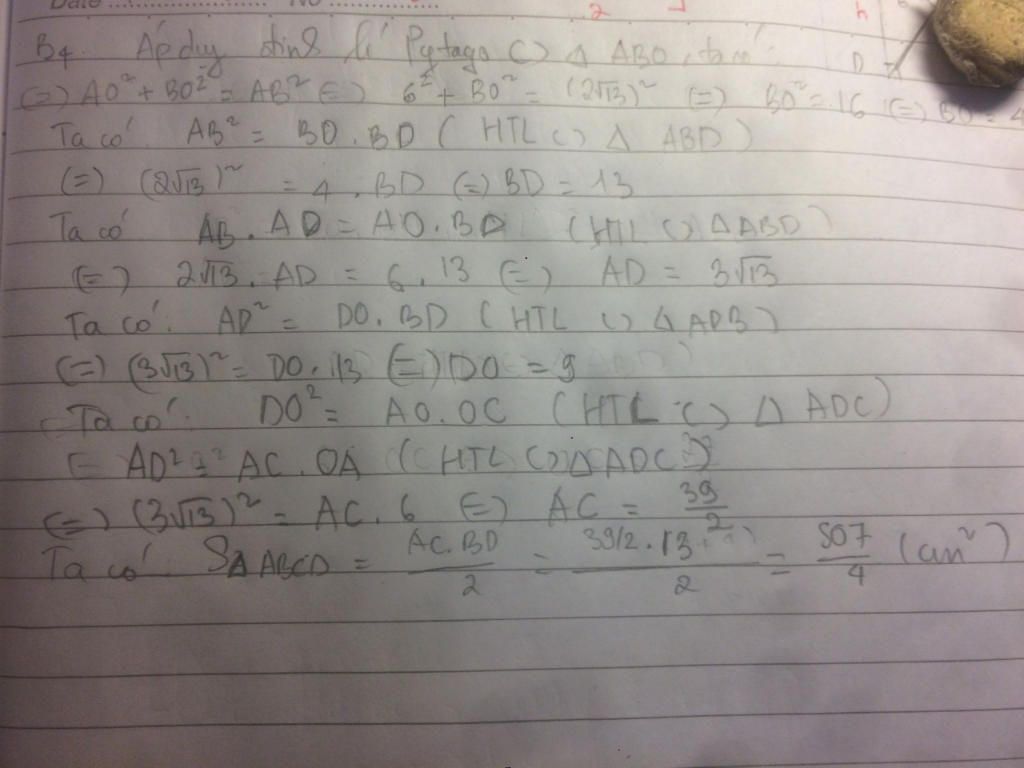 Date ................ No ................
2
h
D
B4. Áp dụg định lí Pytago C) Δ ABO, ta có:
(=) AO² + BO² = AB² (=) 6² + BO² = (2√13)² (=) BO² = 16 (=) BO = 4
Ta có: AB² = BO . BD ( HTL C) Δ ABD )
(=) (2√13)² = 4 . BD (=) BD = 13
Ta có AB . AD = AO . BD (HTL C) Δ ABD)
(=) 2√13 . AD = 6 . 13 (=) AD = 3√13
Ta có: AD² = DO . BD ( HTL C) Δ ADB )
(=) (3√13)² = DO . 13 (=) DO = 9
Ta có: DO² = AO . OC ( HTL C) Δ ADC )
= AD² = AC . OA ( HTL C) Δ ADC )
(=) (3√13)² = AC . 6 (=) AC = 39/2
Ta có: SΔ ABCD = AC.BD/2 = 39/2 . 13/2 = 507/4 (cm²)